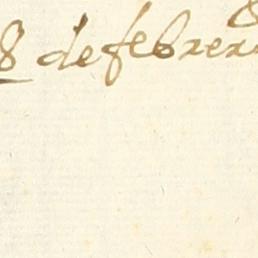 8 de febrero